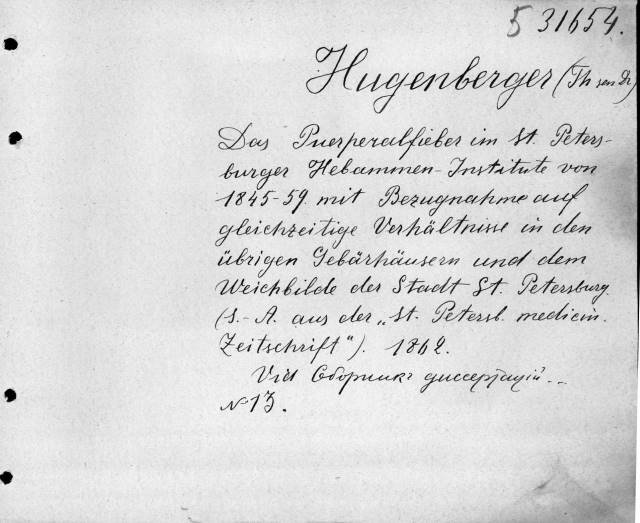 5 31654.
Hugenberger (Th sen Dr)
Das Puerperalfieber im St. Peters-
burger Hebammen-Institute von
1845-59. mit Bezugnahme auf
gleichzeitige Verhältnisse in den
übrigen Gebärhäusern und dem
Weichbilde der Stadt St. Petersburg.
(S.-A. aus der „St. Petersb. medicin.
Zeitschrift"). 1862.
Vid Сборникъ диссертацій...
№ 13.